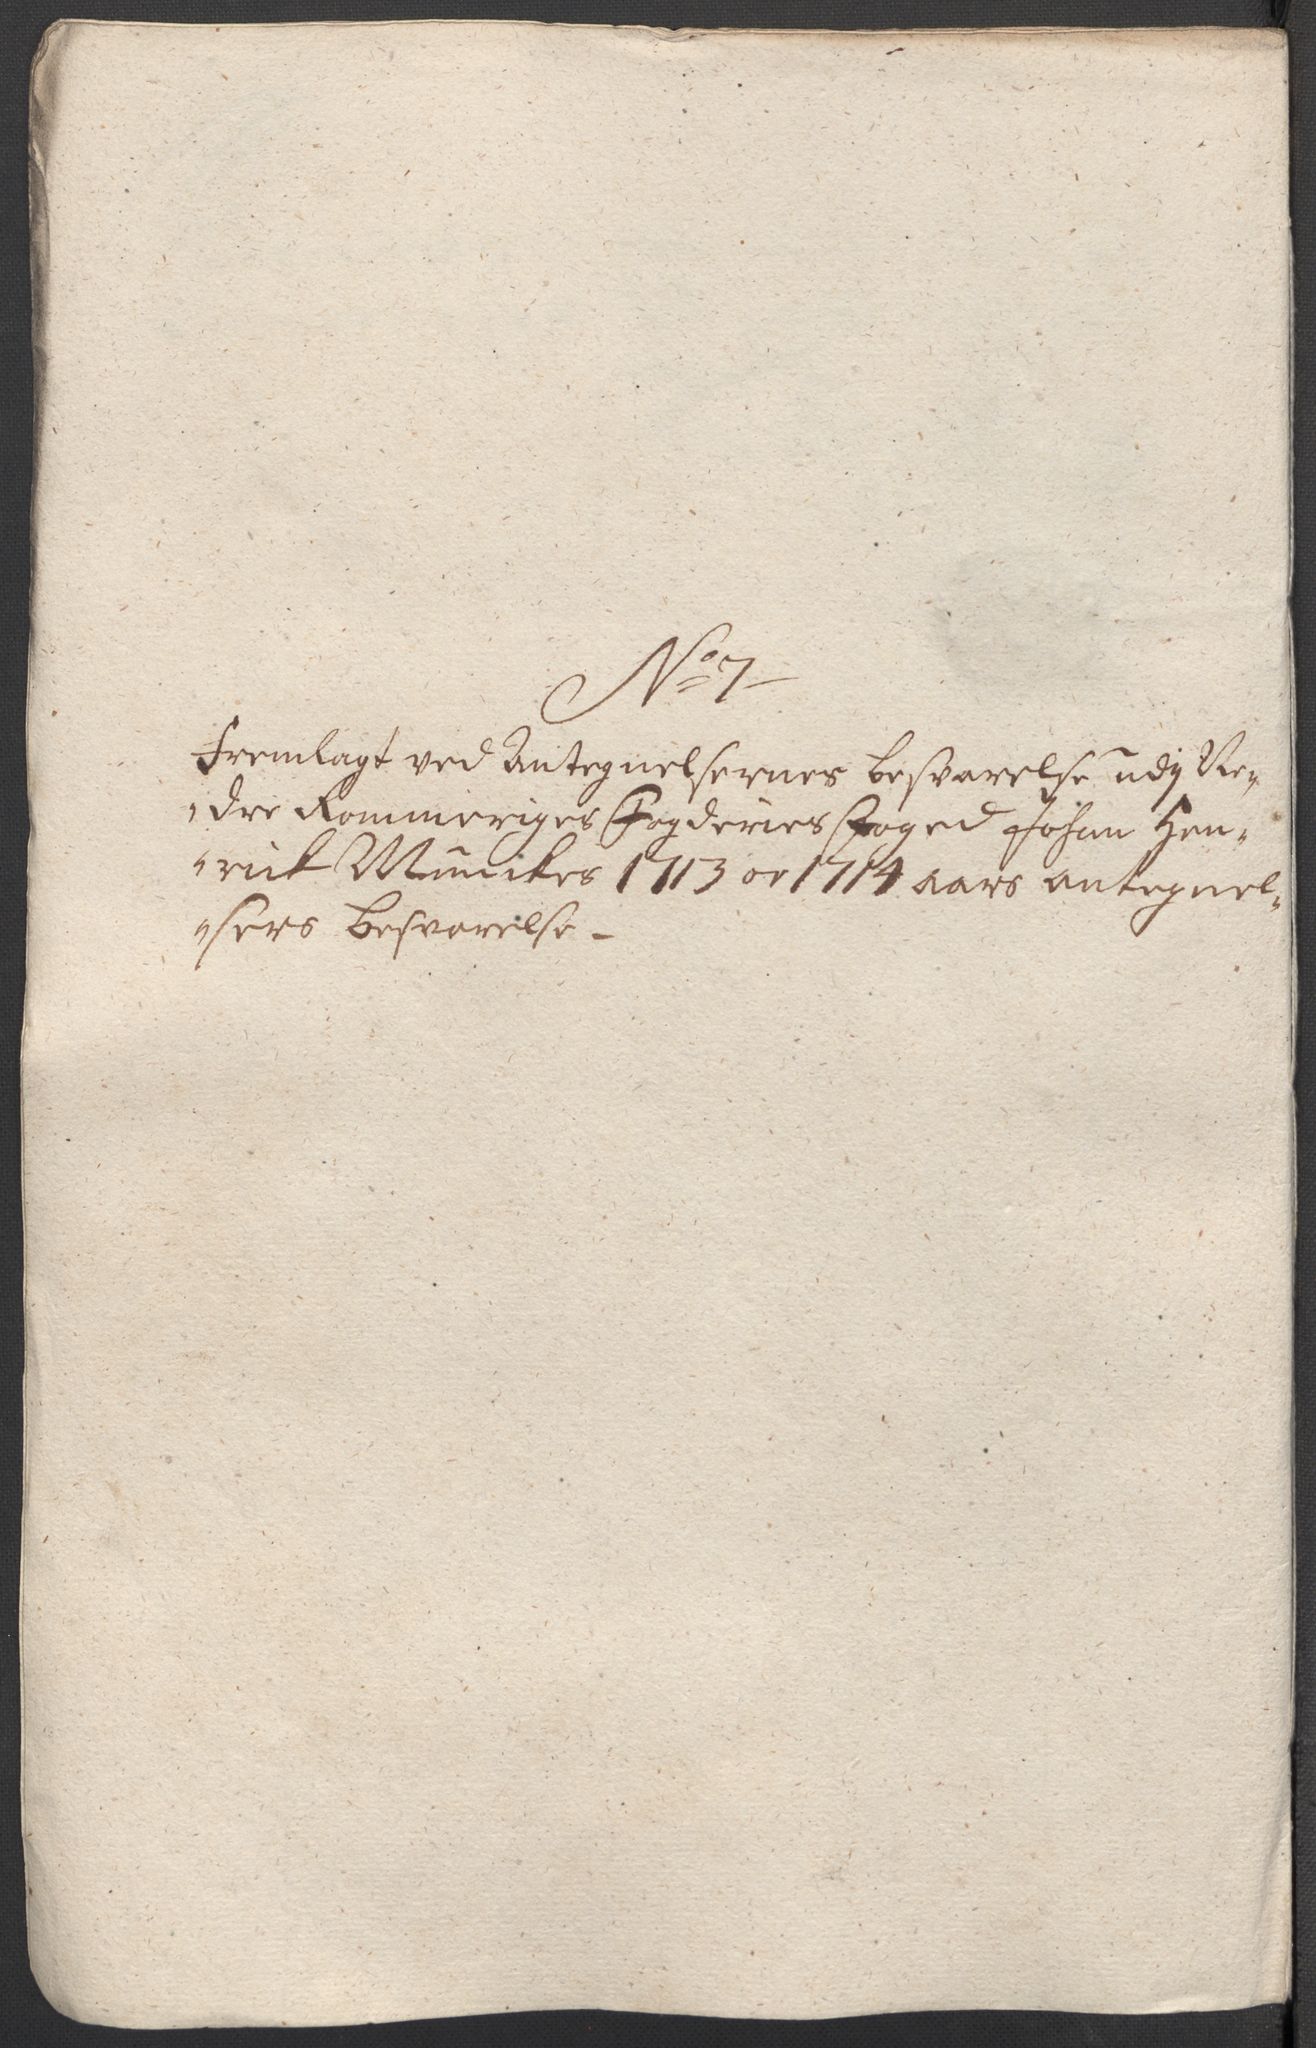 No 7
Fremlagt ved Antegnelsernes besvarelse udj Ne„
„dre Rommeriges Fogderies Foged Johan Hen„
„rick Munckes 1713 oc 1714 aars antegnel„
„sers besvarelse –